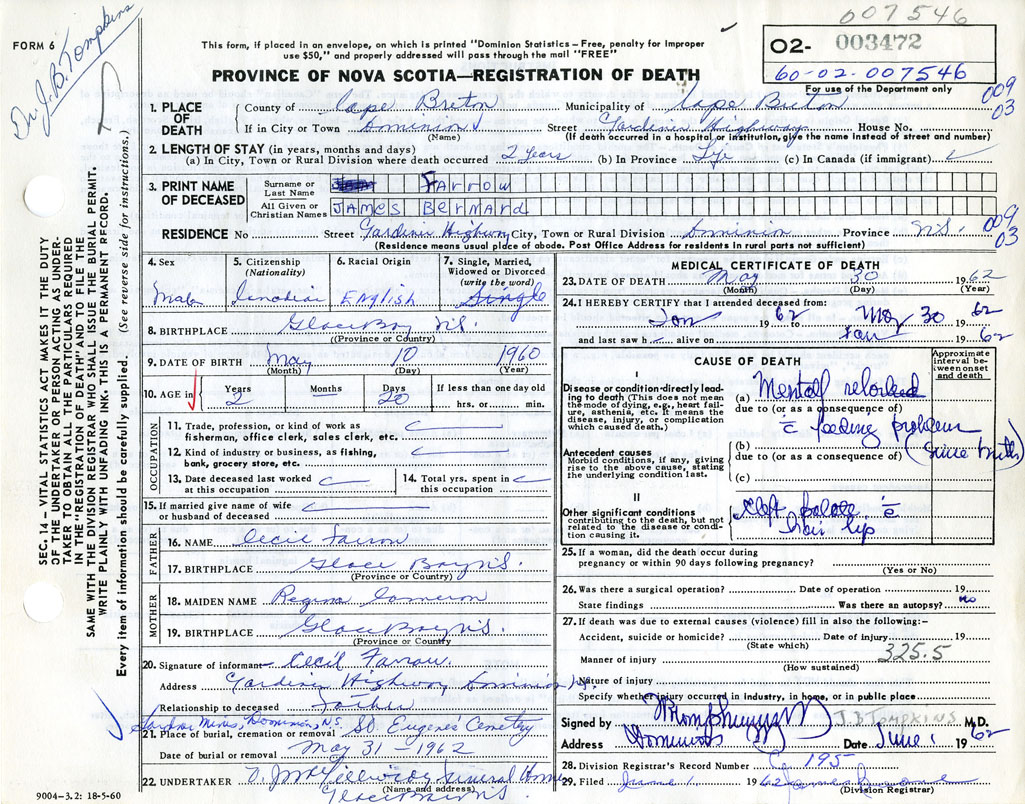 007546
FORM 6
Dr. J. B. Tompkins
This form, if placed in an envelope, on which is printed "Dominion Statistics – Free, penalty for Improper
use $50," and properly addressed will pass through the mail "FREE"
PROVINCE OF NOVA SCOTIA—REGISTRATION OF DEATH
02- 003472
60-02-007546
For use of the Department only
009
03
SEC. 14 – VITAL STATISTICS ACT MAKES IT THE DUTY
OF THE UNDERTAKER OR PERSON ACTING AS UNDER-
TAKER TO OBTAIN ALL THE PARTICULARS REQUIRED
IN THE "REGISTRATION OF DEATH" AND TO FILE THE
SAME WITH THE DIVISION REGISTRAR WHO SHALL ISSUE THE BURIAL PERMIT.
WRITE PLAINLY WITH UNFADING INK. THIS IS A PERMANENT RECORD.
Every item of information should be carefully supplied. (See reverse side for instructions.)
1. PLACE OF DEATH
County of Cape Breton Municipality of Cape Breton
If in City or Town Dominion Street Gardiner Highway House No.
(Name) (If death occurred in a hospital or institution, give the name instead of street and number)
2. LENGTH OF STAY (in years, months and days)
(a) In City, Town or Rural Division where death occurred 2 years (b) In Province Life (c) In Canada (if immigrant)
3. PRINT NAME OF DECEASED
Surname or Last Name Farrow
All Given or Christian Names JAMES BERNARD
RESIDENCE No Street Gardiner Highway City, Town or Rural Division Dominion Province N.S.
009
03
(Residence means usual place of abode. Post Office Address for residents in rural parts not sufficient)
4. Sex 5. Citizenship (Nationality) 6. Racial Origin 7. Single, Married, Widowed or Divorced (write the word)
Male Canadian English Single
8. BIRTHPLACE Glace Bay N.S.
(Province or Country)
9. DATE OF BIRTH May 10 1960
(Month) (Day) (Year)
10. AGE in Years Months Days If less than one day old
2 20 hrs. or min.
OCCUPATION
11. Trade, profession, or kind of work as
fisherman, office clerk, sales clerk, etc.
12. Kind of industry or business, as fishing,
bank, grocery store, etc.
13. Date deceased last worked at this occupation 14. Total yrs. spent in this occupation
15. If married give name of wife
or husband of deceased
FATHER
16. NAME Cecil Farrow
17. BIRTHPLACE Glace Bay N.S.
(Province or Country)
MOTHER
18. MAIDEN NAME Regina Cameron
19. BIRTHPLACE Glace Bay N.S.
(Province or Country
20. Signature of informant Cecil Farrow.
Address Gardiner Highway Dominion N.S.
Relationship to deceased Father
Gardiner Mines, Dominion, N.S.
21. Place of burial, cremation or removal St Eugenes Cemetery
Date of burial or removal May 31 – 1962
22. UNDERTAKER Funeral Home
(Name and address)
Glace Bay N.S.
9004-3.2: 18-5-60
MEDICAL CERTIFICATE OF DEATH
23. DATE OF DEATH May 30 1962
(Month) (Day) (Year)
24. I HEREBY CERTIFY that I attended deceased from:
Jan 1962 to May 30 62
and last saw h alive on Jan 62
CAUSE OF DEATH
Approximate interval between onset and death
I
Disease or condition directly leading to death (This does not mean the mode of dying, e.g., heart failure, asthenia, etc. It means the disease, injury, or complication which caused death.)
(a) Mental retarded
due to (or as a consequence of)
c̄ feeding problem
(Since birth)
Antecedent causes
Morbid conditions, if any, giving rise to the above cause, stating the underlying condition last.
(b)
due to (or as a consequence of)
(c)
II
Other significant conditions
contributing to the death, but not related to the disease or condition causing it.
cleft palate c̄
hair lip
25. If a woman, did the death occur during
pregnancy or within 90 days following pregnancy?
(Yes or No)
26. Was there a surgical operation? Date of operation 19
State findings Was there an autopsy? no
27. If death was due to external causes (violence) fill in also the following:–
Accident, suicide or homicide? Date of injury 19
(State which)
325.5
Manner of injury
(How sustained)
Nature of injury
Specify whether injury occurred in industry, in home, or in public place
Signed by J B TOMPKINS M.D.
Address Dominion Date June 1 1962
28. Division Registrar's Record Number 195
29. Filed June 1. 1962
(Division Registrar)